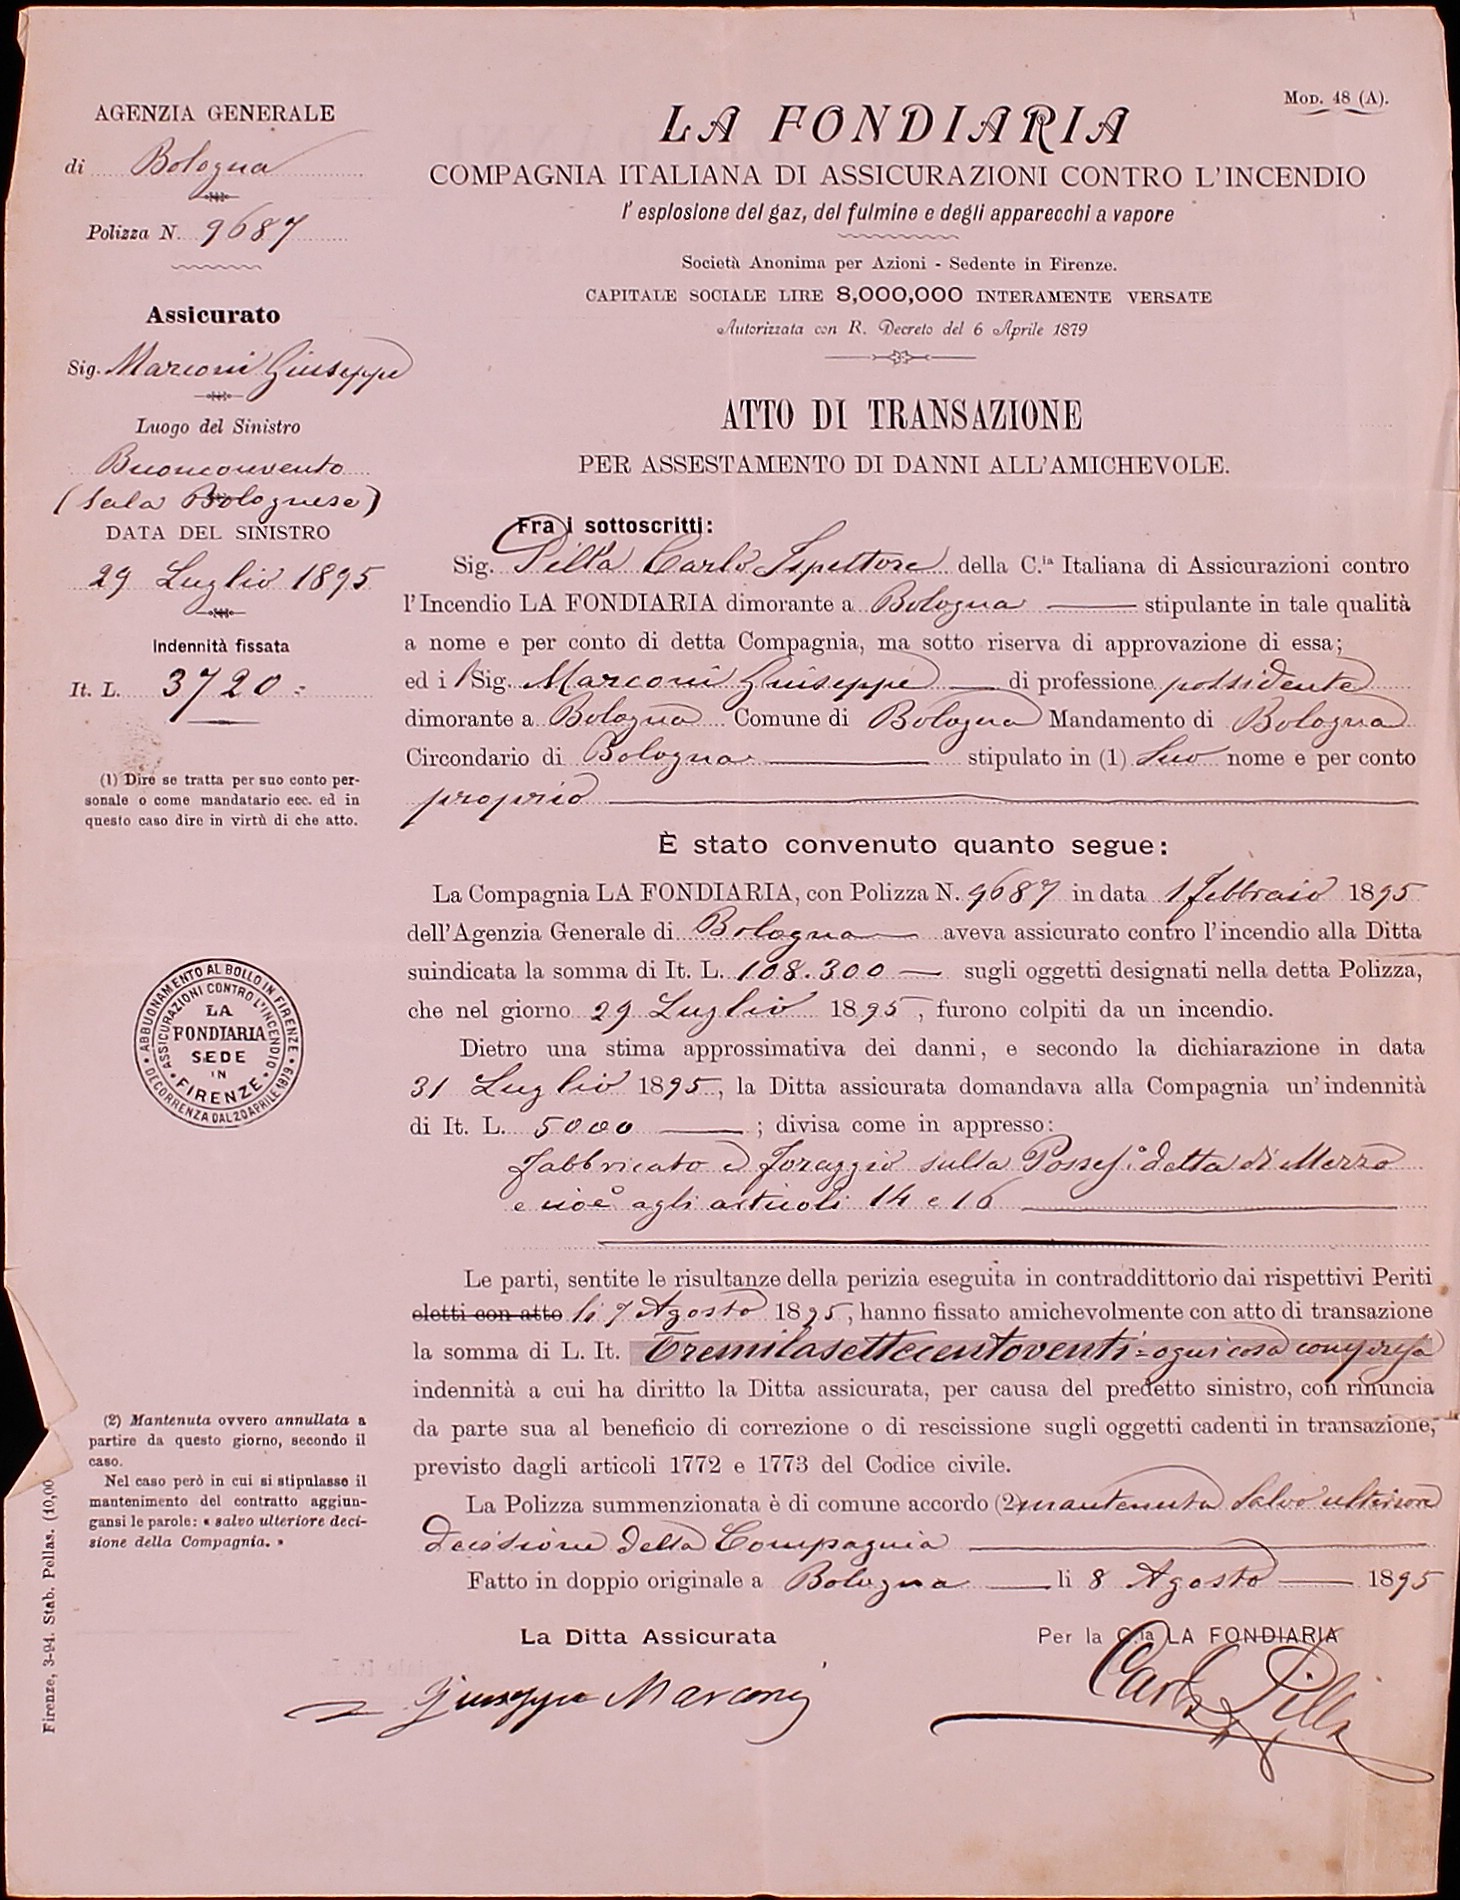 Mod. 48 (A).
AGENZIA GENERALE
di Bologna
Polizza N. 9687
Assicurato
Sig. Marconi Giuseppe
Luogo del Sinistro
Buonconvento
(Sala Bolognese)
DATA DEL SINISTRO
29 Luglio 1895
Indennità fissata
It. L. 3720=
(1) Dire se tratta per suo conto per-
sonale o come mandatario ecc. ed in
questo caso dire in virtù di che atto.
ABBUONAMENTO AL BOLLO IN FIRENZE
DECORRENZA DAL 20 APRILE 1879
ASSICURAZIONI CONTRO L'INCENDIO
LA
FONDIARIA
SEDE
IN
FIRENZE
(2) Mantenuta ovvero annullata a
partire da questo giorno, secondo il
caso.
Nel caso però in cui si stipulasse il
mantenimento del contratto aggiun-
gansi le parole: « salvo ulteriore deci-
sione della Compagnia. »
Firenze, 3-94. Stab. Pellas. (10,00
LA FONDIARIA
COMPAGNIA ITALIANA DI ASSICURAZIONI CONTRO L'INCENDIO
l'esplosione del gaz, del fulmine e degli apparecchi a vapore
Società Anonima per Azioni - Sedente in Firenze.
CAPITALE SOCIALE LIRE 8,000,000 INTERAMENTE VERSATE
Autorizzata con R. Decreto del 6 Aprile 1879
ATTO DI TRANSAZIONE
PER ASSESTAMENTO DI DANNI ALL'AMICHEVOLE.
Fra i sottoscritti:
Sig. Pilla Carlo Ispettore della C.ia Italiana di Assicurazioni contro
l'Incendio LA FONDIARIA dimorante a Bologna stipulante in tale qualità
a nome e per conto di detta Compagnia, ma sotto riserva di approvazione di essa;
ed il Sig. Marconi Giuseppe di professione possidente
dimorante a Bologna Comune di Bologna Mandamento di Bologna
Circondario di Bologna stipulato in (1) Suo nome e per conto
proprio
È stato convenuto quanto segue:
La Compagnia LA FONDIARIA, con Polizza N. 9687 in data 1 febbraio 1895
dell'Agenzia Generale di Bologna aveva assicurato contro l'incendio alla Ditta
suindicata la somma di It. L. 108.300 sugli oggetti designati nella detta Polizza,
che nel giorno 29 Luglio 1895, furono colpiti da un incendio.
Dietro una stima approssimativa dei danni, e secondo la dichiarazione in data
31 Luglio 1895, la Ditta assicurata domandava alla Compagnia un'indennità
di It. L. 5000 ; divisa come in appresso:
Fabbricato e foraggio sulla Possess.e detta di Mezzo
e cioè agli articoli 14 e 16
Le parti, sentite le risultanze della perizia eseguita in contraddittorio dai rispettivi Periti
eletti con atto li 7 Agosto 1895, hanno fissato amichevolmente con atto di transazione
la somma di L. It. Tremilasettecentoventi = ogni cosa compresa
indennità a cui ha diritto la Ditta assicurata, per causa del predetto sinistro, con rinuncia
da parte sua al beneficio di correzione o di rescissione sugli oggetti cadenti in transazione,
previsto dagli articoli 1772 e 1773 del Codice civile.
La Polizza summenzionata è di comune accordo (2) mantenuta salvo ulteriore
decisione della Compagnia
Fatto in doppio originale a Bologna li 8 Agosto 1895
La Ditta Assicurata
Per la C.ia LA FONDIARIA
Giuseppe Marconi
Carlo Pilla